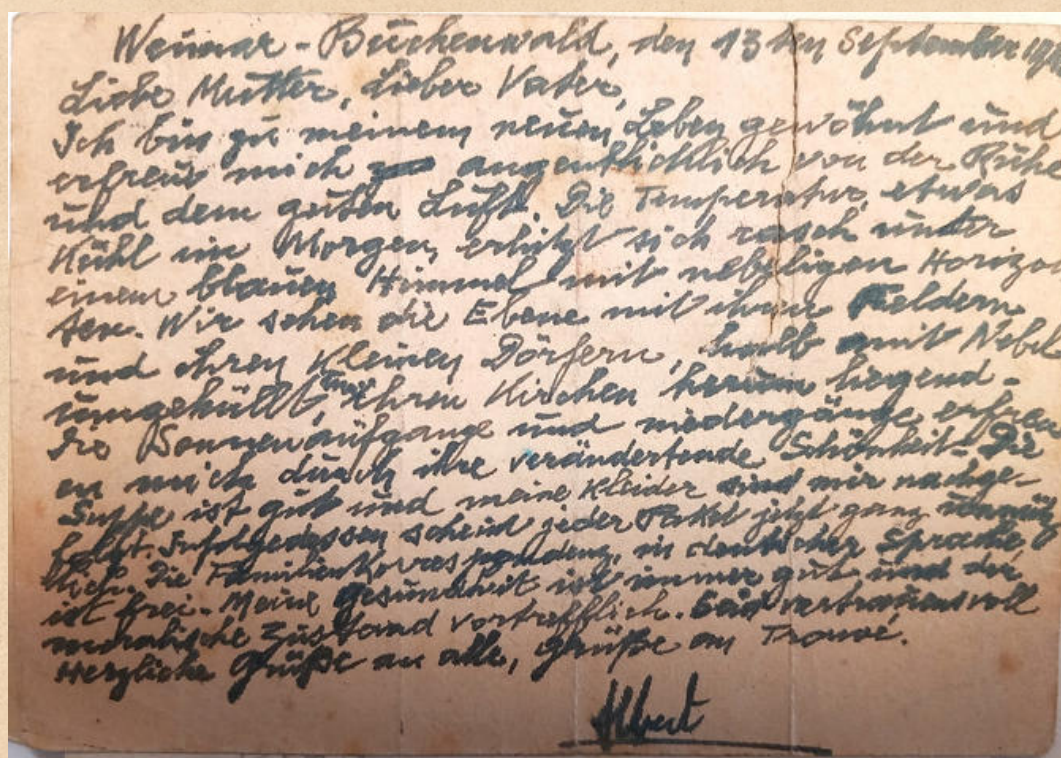 Weimar-Buchenwald, den 13ten September
Liebe Mutter, Lieber Vater,
Ich bin zu meinem neuen Leben gewöhnt und
erfreue mich augenblicklich von der Ruhe
und dem guten Luft. Die Temperatur, etwas
Kühl im Morgen, erhitzt sich rasch unter
einem blauen Himmel mit nebeligen Horizon
ten. Wir sehen die Ebene mit ihren Feldern
und ihren kleinen Dörfern, halb mit Nebel
umgehüllt, um ihren Kirchen herum liegend-
Die Sonnenaufgänge und niedergänge erfreu
en mich durch ihre verändertende Schönheit- Die
Suppe ist gut und meine Kleider sind mir nachge-
folgt. Infolgedessen scheint jeder Paket jetzt ganz unnütz
lich. Die Familienkorrespondenz, in deutscher Sprache,
ist frei- Meine Gesundheit ist immer gut und der
moralische Zustand vortrefflich. Seid vertrauensvoll
Herzliche Grüße an alle, Grüße an
Albert